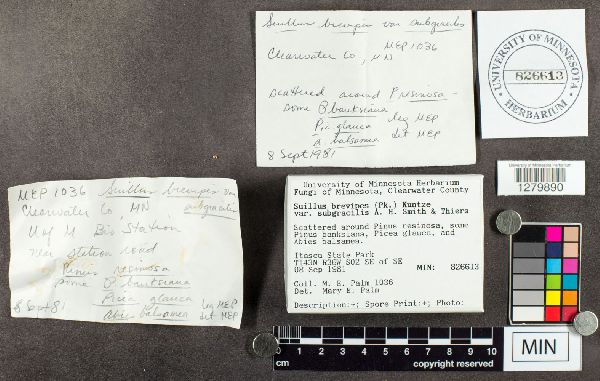 Suillus brevipes var subgracilis
MEP 1036
Clearwater Co, MN
scattered around P resinosa -
some P banksiana
Pic glauca leg MEP
A balsamea det MEP
8 Sept 1981
UNIVERSITY OF MINNESOTA
826613
HERBARIUM
University of Minnesota Herbarium
1279890
MEP 1036 Suillus brevipes var
Clearwater Co, MN subgracilis
U of M Bio Station
near station road
Pinus resinosa
some P banksiana
Picea glauca leg MEP
8 Sept 81 Abies balsamea det MEP
University of Minnesota Herbarium
Fungi of Minnesota, Clearwater County
Suillus brevipes (Pk.) Kuntze
var. subgracilis A. H. Smith & Thiers
Scattered around Pinus resinosa, some
Pinus banksiana, Picea glauca, and
Abies balsamea.
Itasca State Park
T143N R36W S02 SE of SE
08 Sep 1981 MIN: 826613
Coll. M. E. Palm 1036
Det. Mary E. Palm
Description:+; Spore Print:+; Photo:
0 1 2 3 4 5 6 7 8 9 10
cm copyright reserved
MIN